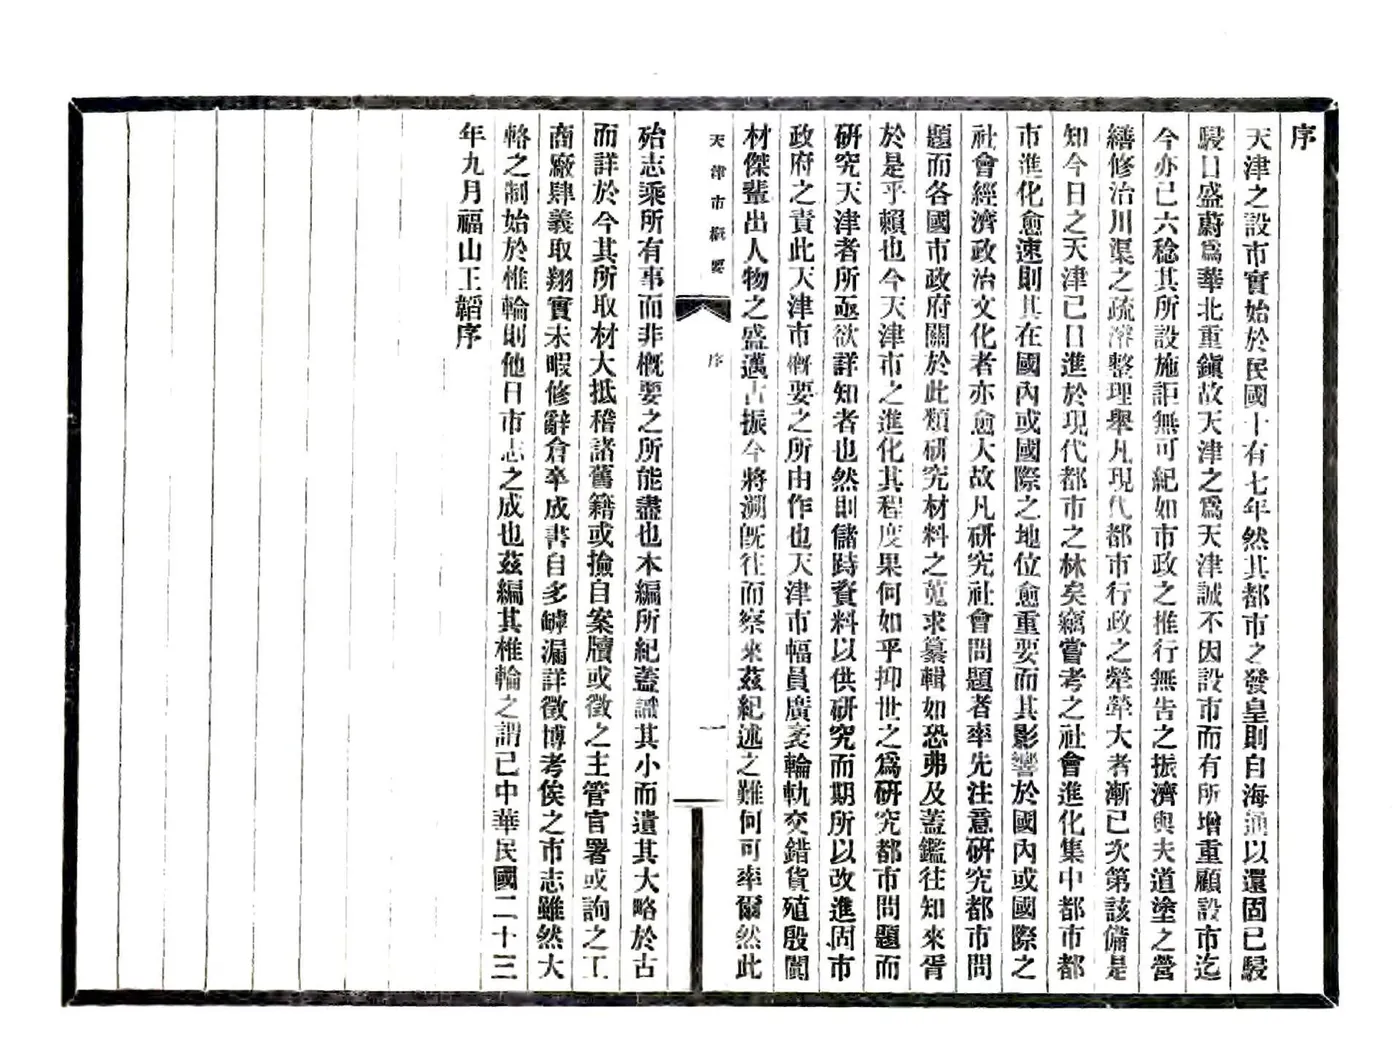 序
天津之設市實始於民國十有七年然其都市之發皇則自海通以還固已駸
駸日盛蔚爲華北重鎭故天津之爲天津誠不因設市而有所增重顧設市迄
今亦已六稔其所設施詎無可紀如市政之推行無告之振濟與夫道塗之營
繕修治川渠之疏濬整理舉凡現代都市行政之犖犖大者漸已次第該備是
知今日之天津已日進於現代都市之林矣竊嘗考之社會進化集中都市都
市進化愈速則其在國內或國際之地位愈重要而其影響於國內或國際之
社會經濟政治文化者亦愈大故凡研究社會問題者率先注意研究都市問
題而各國市政府關於此類研究材料之蒐求纂輯如恐弗及蓋鑑往知來胥
於是乎賴也今天津市之進化其程度果何如乎抑世之爲研究都市問題而
研究天津者所亟欲詳知者也然則儲跱資料以供研究而期所以改進固市
政府之責此天津市概要之所由作也天津市幅員廣袤輪軌交錯貨殖殷闐
材傑輩出人物之盛邁古振今將溯旣往而察來茲紀述之難何可率爾然此
天津市概要
序
一
殆志乘所有事而非概要之所能盡也本編所紀蓋識其小而遺其大略於古
而詳於今其所取材大抵稽諸舊籍或撿自案牘或徵之主管官署或詢之工
商廠肆義取翔實未暇修辭倉卒成書自多罅漏詳徵博考俟之市志雖然大
輅之制始於椎輪則他日市志之成也茲編其椎輪之謂已中華民國二十三
年九月福山王韜序